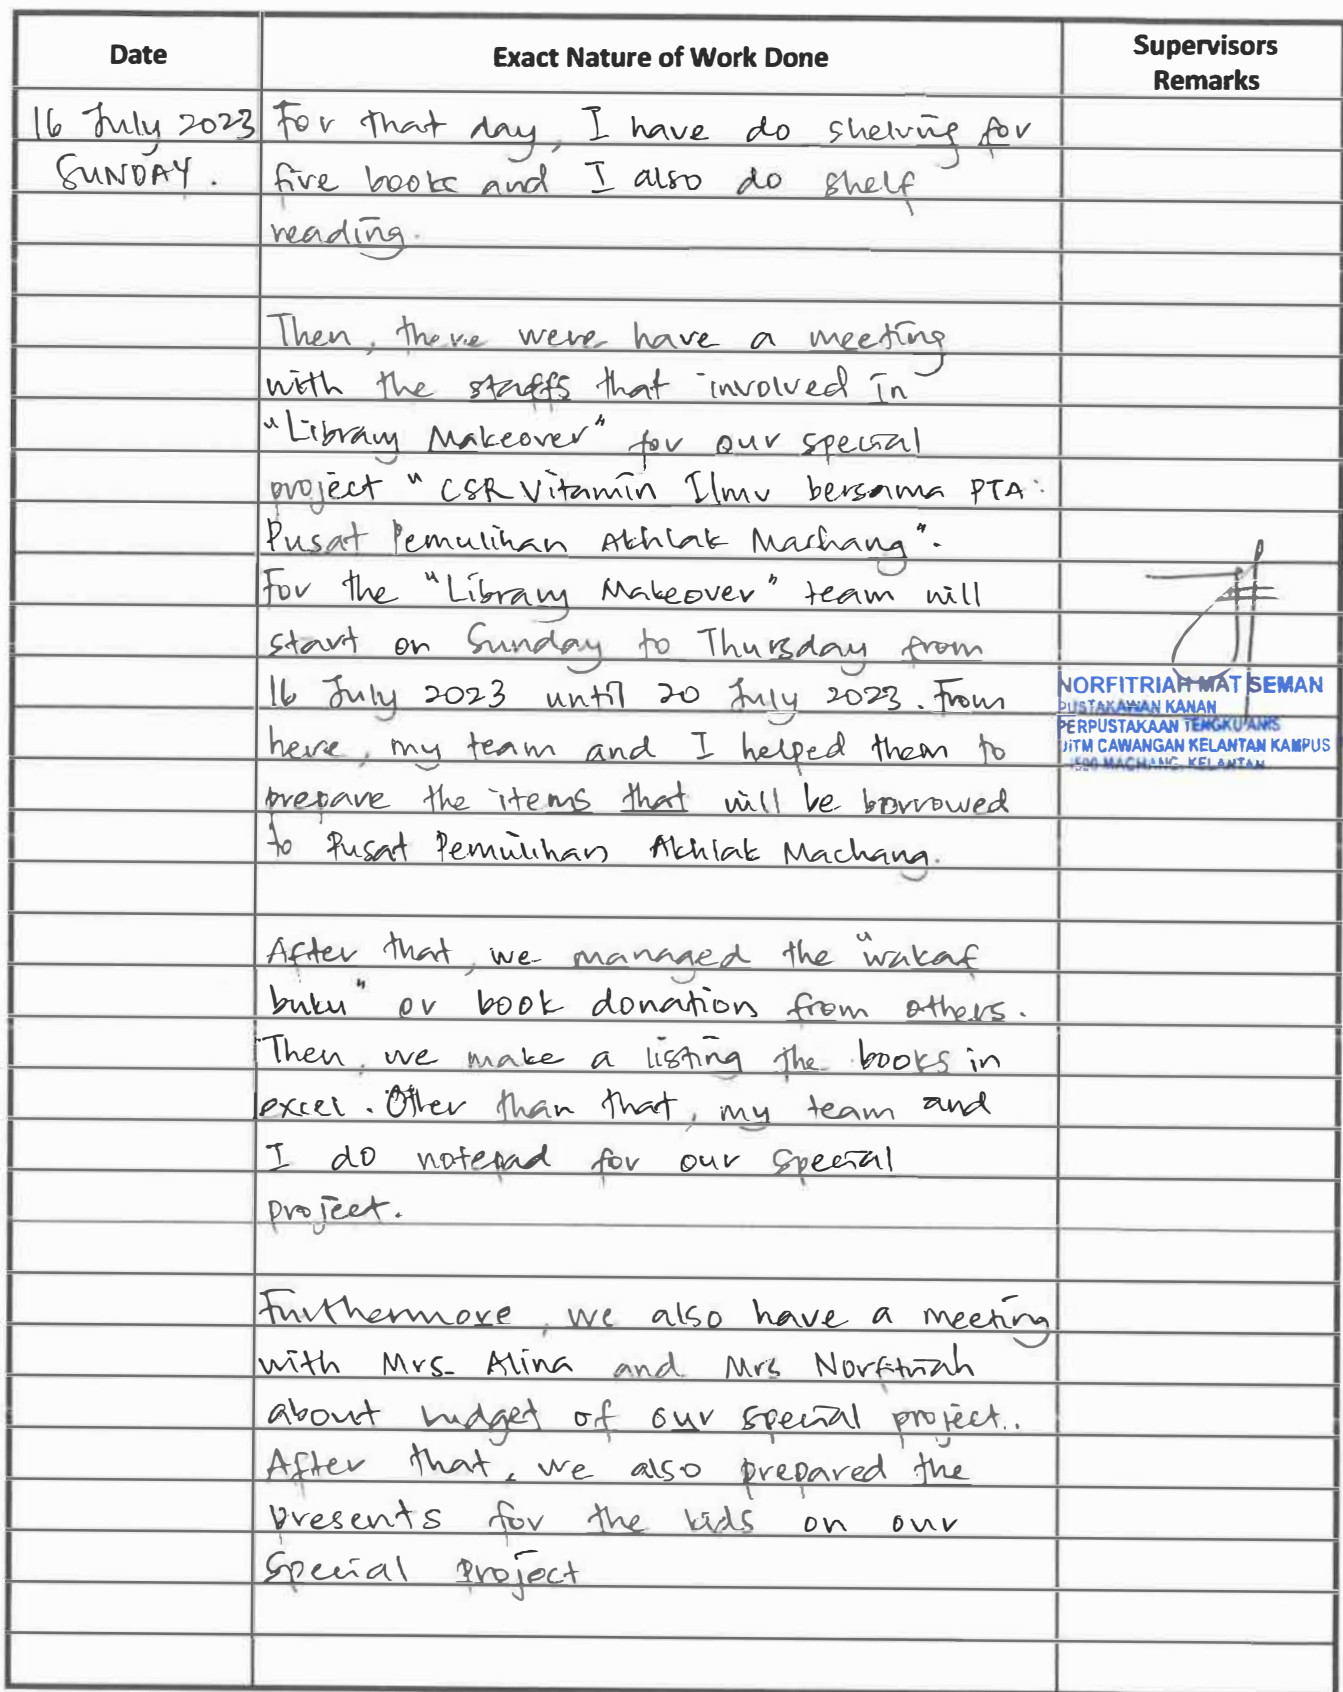 Date
Exact Nature of Work Done
Supervisors
Remarks
16 July 2023
SUNDAY.
For that day, I have do shelving for
five books and I also do shelf
reading.
Then, there were have a meeting
with the staffs that involved in
"Library Makeover" for our special
project "CSR Vitamin Ilmu bersama PTA:
Pusat Pemulihan Akhlak Machang".
For the "Library Makeover" team will
start on Sunday to Thursday from
16 July 2023 until 20 July 2023. From
here, my team and I helped them to
prepare the items that will be borrowed
to Pusat Pemulihan Akhlak Machang.
After that, we managed the "wakaf
buku" or book donation from others.
Then, we make a listing the books in
excel. Other than that, my team and
I do notepad for our special
project.
Furthermore, we also have a meeting
with Mrs. Alina and Mrs Norfitriah
about budget of our special project.
After that, we also prepared the
presents for the kids on our
special project
NORFITRIAH MAT SEMAN
PUSTAKAWAN KANAN
PERPUSTAKAAN TENGKU ANIS
UiTM CAWANGAN KELANTAN KAMPUS
MACHANG, KELANTAN